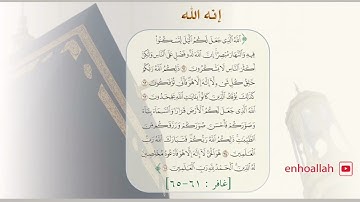 إنه الله
ٱللَّهُ ٱلَّذِى جَعَلَ لَكُمُ ٱلَّيْلَ لِتَسْكُنُوا۟
فِيهِ وَٱلنَّهَارَ مُبْصِرًا إِنَّ ٱللَّهَ لَذُو فَضْلٍ عَلَى ٱلنَّاسِ وَلَٰكِنَّ
أَكْثَرَ ٱلنَّاسِ لَا يَشْكُرُونَ ۝ ذَٰلِكُمُ ٱللَّهُ رَبُّكُمْ
خَٰلِقُ كُلِّ شَىْءٍ لَّآ إِلَٰهَ إِلَّا هُوَ فَأَنَّىٰ تُؤْفَكُونَ ۝
كَذَٰلِكَ يُؤْفَكُ ٱلَّذِينَ كَانُوا۟ بِـَٔايَٰتِ ٱللَّهِ يَجْحَدُونَ ۝
ٱللَّهُ ٱلَّذِى جَعَلَ لَكُمُ ٱلْأَرْضَ قَرَارًا وَٱلسَّمَآءَ بِنَآءً
وَصَوَّرَكُمْ فَأَحْسَنَ صُوَرَكُمْ وَرَزَقَكُم مِّنَ
ٱلطَّيِّبَٰتِ ذَٰلِكُمُ ٱللَّهُ رَبُّكُمْ فَتَبَارَكَ ٱللَّهُ رَبُّ
ٱلْعَٰلَمِينَ ۝ هُوَ ٱلْحَىُّ لَآ إِلَٰهَ إِلَّا هُوَ فَٱدْعُوهُ مُخْلِصِينَ
لَهُ ٱلدِّينَ ٱلْحَمْدُ لِلَّهِ رَبِّ ٱلْعَٰلَمِينَ ۝
[غافر : ٦١-٦٥]
enhoallah